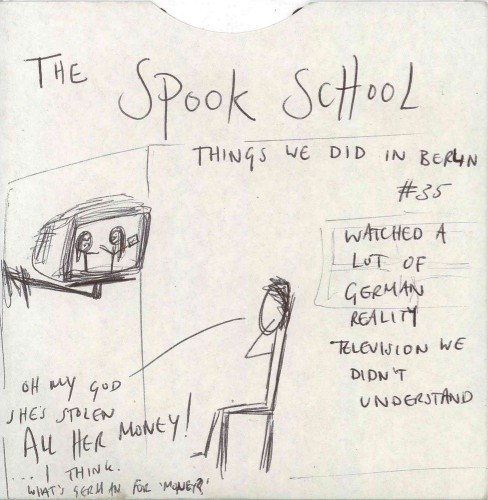 THE SPOOK SCHOOL
THINGS WE DID IN BERLIN
#35
WATCHED A
LOT OF
GERMAN
REALITY
TELEVISION WE
DIDN'T
UNDERSTAND
OH MY GOD
SHE'S STOLEN
ALL HER MONEY!
... I THINK.
WHAT'S GERMAN FOR 'MONEY?'